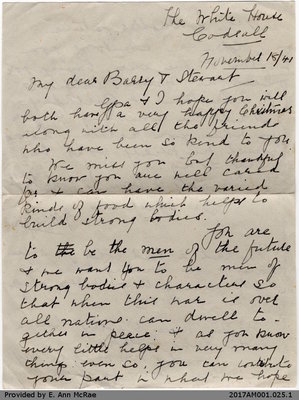 The White House
Codsall
November 18/41
My dear Barry & Stewart
Gpa & I hope you will
both have a very Happy Christmas
along with all the friends
who have been so kind to you
We miss you but thankful
to know you are well cared
for & can have the varied
kinds of food which helps to
build strong bodies.
You are
to the be the men of the future
& we want you to be men of
strong bodies & characters so
that when this war is over
all nations can dwell to-
gether in peace; & as you know
every little helps in very many
things even so, you can
your part in what we hope
Provided by E. Ann McRae
2017AM001.025.1